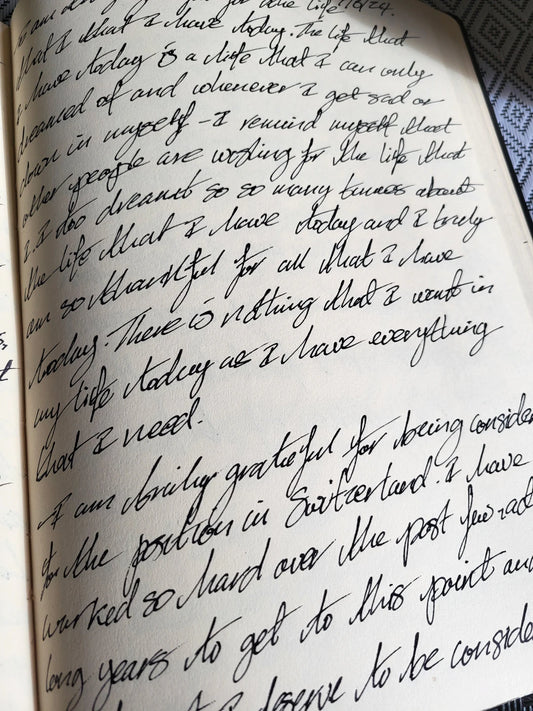 for the life 16/24.
that I that I have today. The life that
I have today is a life that I can only
dreamed of and whenever I get sad or
down in myself - I remind myself that
other people are wishing for the life that
I. I do dreamt so so many times about
the life that I have today and I truly
am so thankful for all that I have
today. There is nothing that I want in
my life today as I have everything
that I need.
I am truly grateful for being consider
for the position in Switzerland. I have
worked so hard over the past few
long years to get to this point an
I deserve to be conside